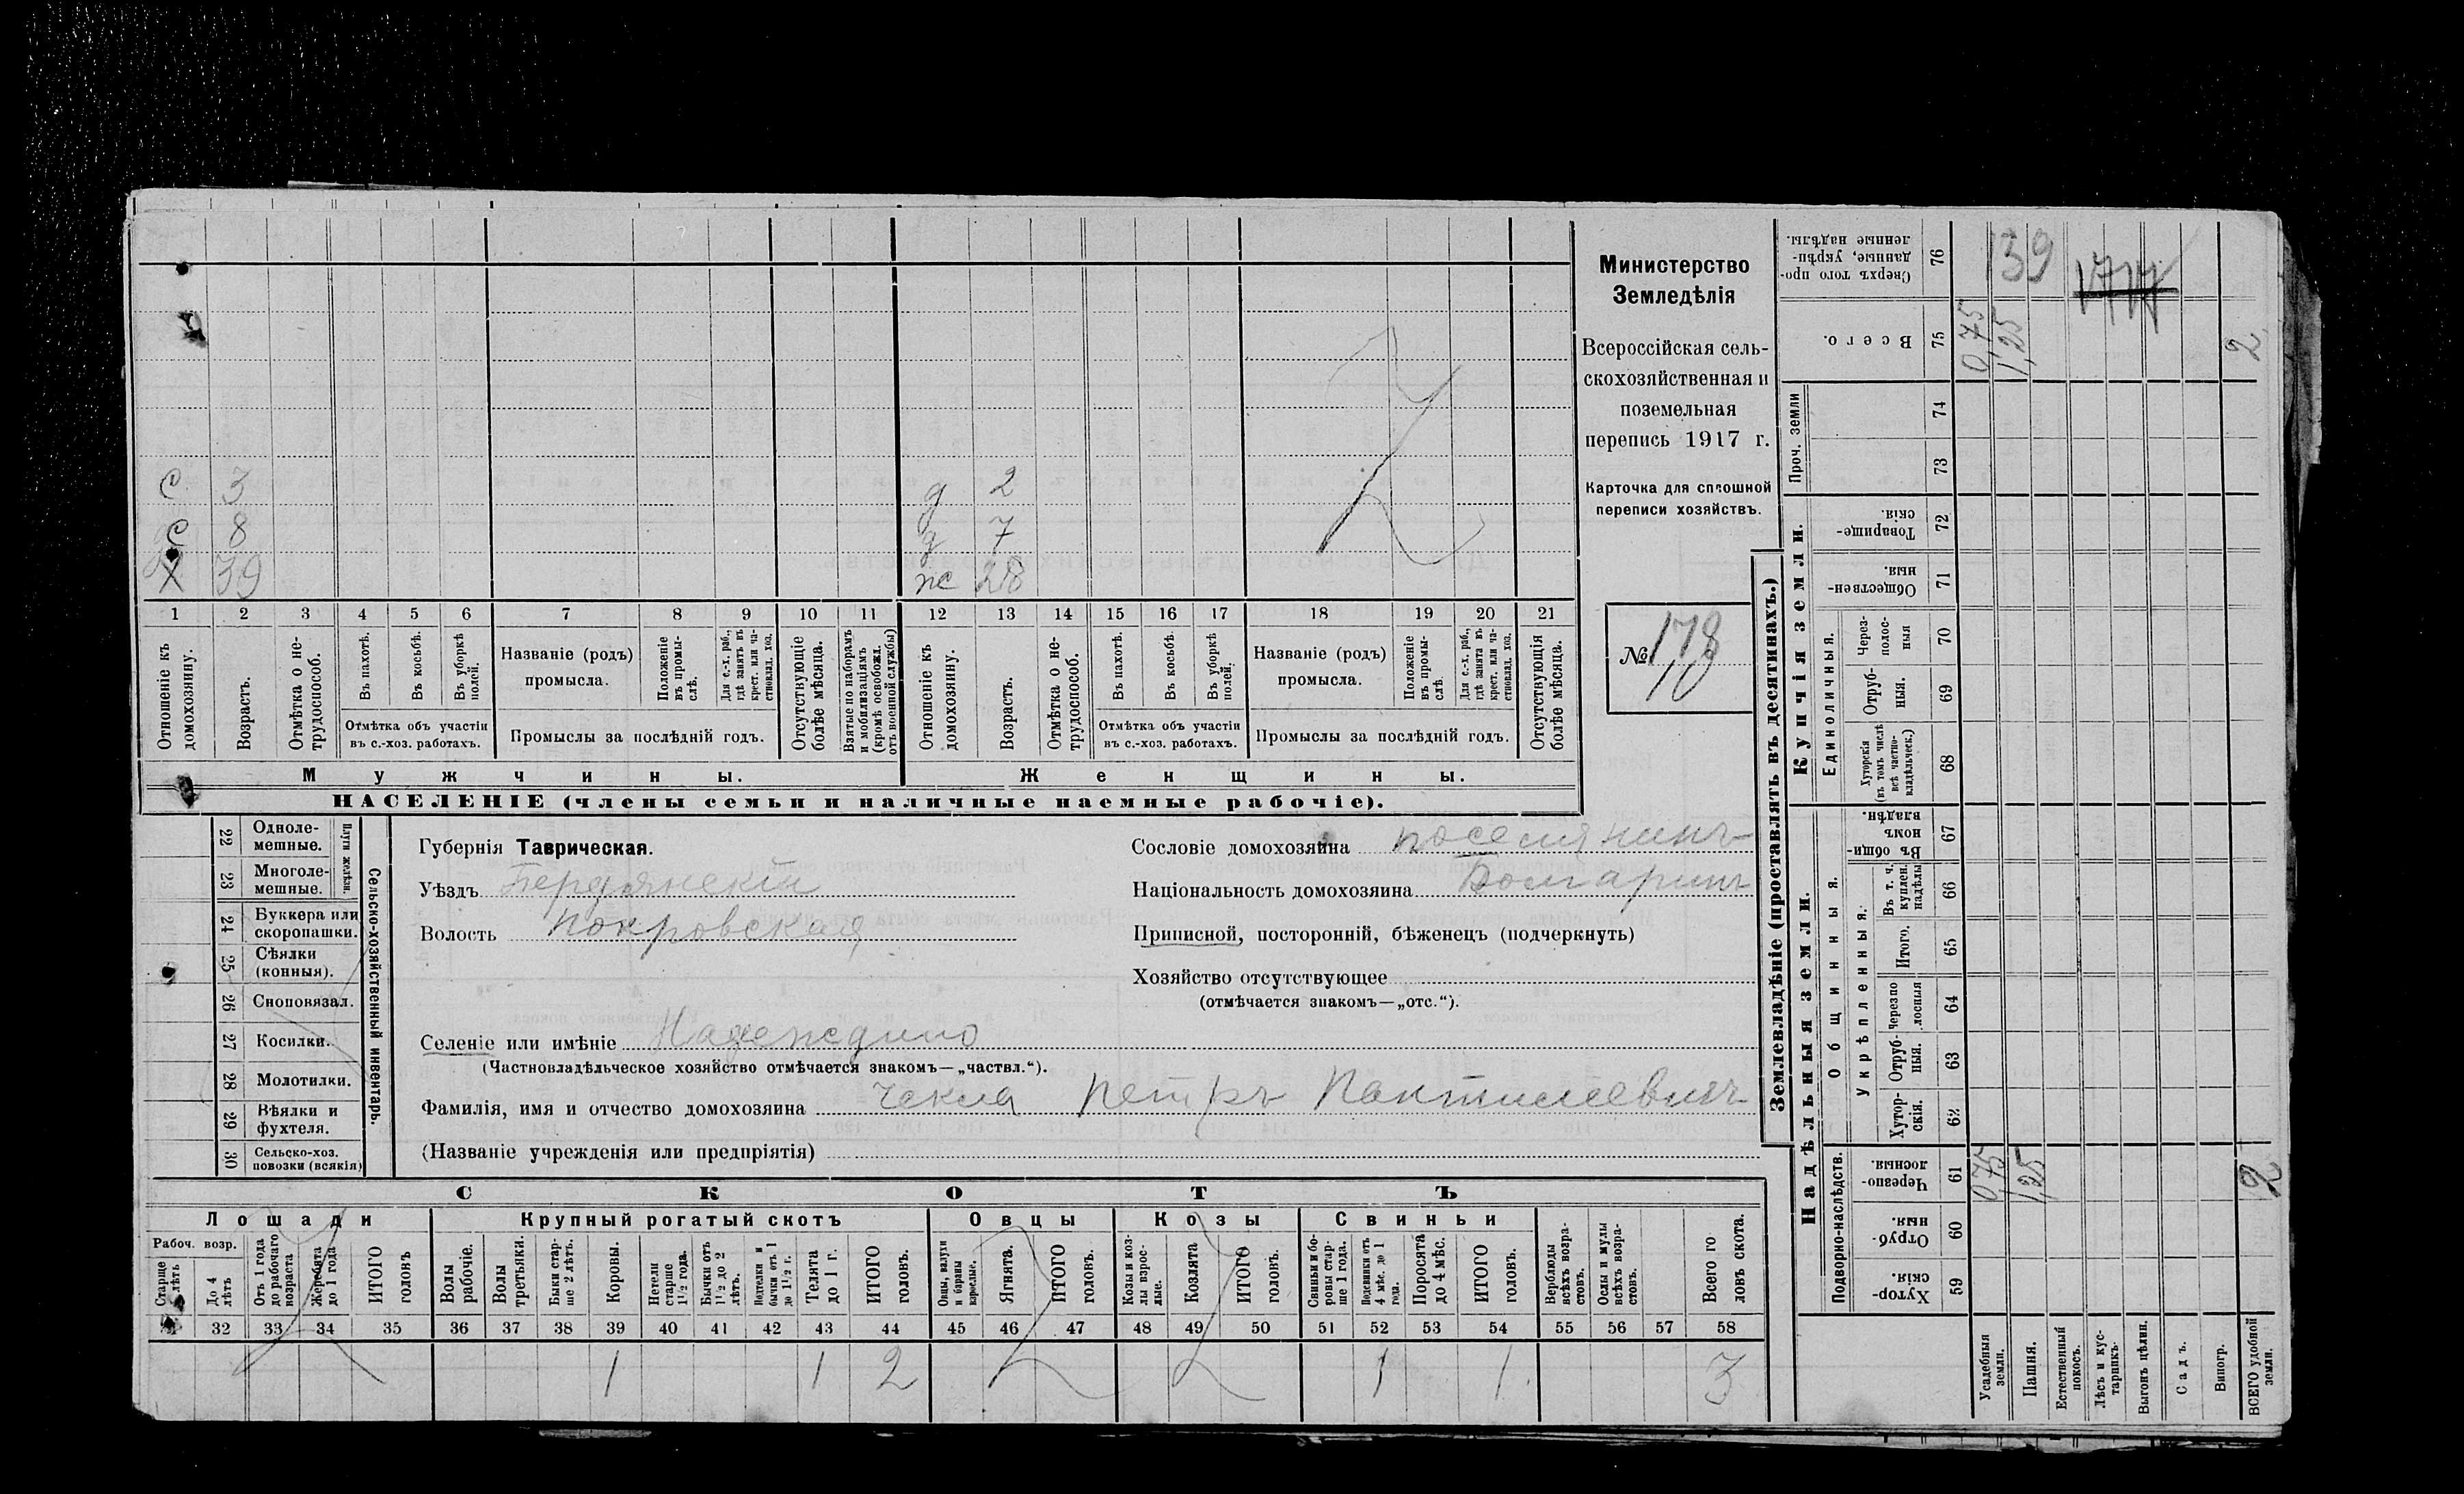 Министерство
Земледѣлія
Всероссійская сель-
скохозяйственная и
поземельная
перепись 1917 г.
Карточка для сплошной
переписи хозяйствъ.
№ 178
с 3 д 2
с 8 д 7
х 39 ж 28
1 2 3 4 5 6 7 8 9 10 11 12 13 14 15 16 17 18 19 20 21
Отношеніе къ домохозяину.
Возрастъ.
Отмѣтка о не-трудоспособ.
Въ пахотѣ.
Въ косьбѣ.
Въ уборкѣ полей.
Отмѣтка объ участіи
въ с.-хоз. работахъ.
Названіе (родъ)
промысла.
Положеніе въ промы-слѣ.
Для с.-х. раб., гдѣ занятъ въ крест. или ча-стновлад. хоз.
Промыслы за послѣдній годъ.
Отсутствующіе болѣе мѣсяца.
Взятые по наборамъ и мобилизаціямъ (кромѣ освобожд. отъ военной службы)
Отношеніе къ домохозяину.
Возрастъ.
Отмѣтка о не-трудоспособ.
Въ пахотѣ.
Въ косьбѣ.
Въ уборкѣ полей.
Отмѣтка объ участіи
въ с.-хоз. работахъ.
Названіе (родъ)
промысла.
Положеніе въ промы-слѣ.
Для с.-х. раб., гдѣ занята въ крест. или ча-стновлад. хоз.
Промыслы за послѣдній годъ.
Отсутствующія болѣе мѣсяца.
Мужчины.
Женщины.
НАСЕЛЕНІЕ (члены семьи и наличные наемные рабочіе).
Сельско-хозяйственный инвентарь.
Плуги желѣзн.
22 Одноле-мешные.
23 Многоле-мешные.
24 Буккера или скоропашки.
25 Сѣялки (конныя).
26 Сноповязал.
27 Косилки.
28 Молотилки.
29 Вѣялки и фухтеля.
30 Сельско-хоз. повозки (всякія)
Губернія Таврическая.
Уѣздъ Бердянскій
Волость Покровская
Сословіе домохозяина поселянинъ
Національность домохозяина Болгаринъ
Приписной, посторонній, бѣженецъ (подчеркнуть)
Хозяйство отсутствующее
(отмѣчается знакомъ—„отс.“).
Селеніе или имѣніе Надеждино
(Частновладѣльческое хозяйство отмѣчается знакомъ—„частвл.“).
Фамилія, имя и отчество домохозяина Петръ
(Названіе учрежденія или предпріятія)
СКОТЪ
Лошади
Крупный рогатый скотъ
Овцы
Козы
Свиньи
Рабоч. возр.
Старше лѣтъ
До 4 лѣтъ
Отъ 1 года до рабочаго возраста
Жеребята до 1 года
ИТОГО головъ
Волы рабочіе.
Волы третьяки.
Быки стар-ше 2 лѣтъ.
Коровы.
Нетели старше 1½ года.
Бычки отъ 1½ до 2 лѣтъ.
Подтелки и бычки отъ 1 до 1½ г.
Телята до 1 г.
ИТОГО головъ.
Овцы, валухи и бараны взрослые.
Ягнята.
ИТОГО головъ.
Козы и коз-лы взрос-лые.
Козлята
ИТОГО головъ.
Свиньи и бо-ровы стар-ше 1 года.
Подсвинки отъ 4 мѣс. до 1 года.
Поросята до 4 мѣс.
ИТОГО головъ.
Верблюды всѣхъ возра-стовъ.
Ослы и мулы всѣхъ возра-стовъ.
Всего го ловъ скота.
32 33 34 35 36 37 38 39 40 41 42 43 44 45 46 47 48 49 50 51 52 53 54 55 56 57 58
1 1 2 1 1 3
Землевладѣніе (проставлять въ десятинахъ.)
Надѣльныя земли.
Купчія земли.
Проч. земли
Подворно-наслѣдств.
Общинныя.
Укрѣпленныя.
Единоличныя.
Сверхъ того про-данные, укрѣп-ленные надѣлы. 76
Всего. 75
74
73
Товарище-скія. 72
Обществен-ныя. 71
Через-полос-ныя 70
Отруб-ныя. 69
Хуторскія (въ томъ числѣ всѣ частно-владѣльческ.) 68
Въ общи-номъ владѣн. 67
Въ т. ч. куплен. надѣлы 66
Итого. 65
Черезпо лосныя 64
Отруб-ныя. 63
Хутор-скія. 62
Черезпо-лосныя. 61
Отруб-ныя. 60
Хутор-скія. 59
139
0,75 1,25 2
0,75 1,25 2
Усадебныя земли.
Пашня.
Естественный покосъ.
Лѣсъ и кус-тарникъ.
Выгонъ цѣлин.
Садъ.
Виногр.
ВСЕГО удобной земли.